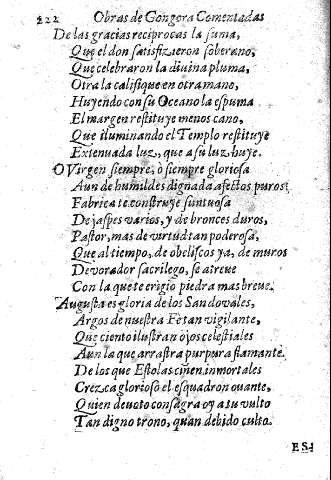 222 Obras de Gongora Comentadas
De las gracias reciprocas la suma,
Que el don satisfizieron soberano,
Que celebraron la diuina pluma,
Otra la califique en otra mano,
Huyendo con su Oceano la espuma
El margen restituye menos cano,
Que iluminando el Templo restituye
Extenuada luz, que a su luz huye.
O Virgen siempre, ò siempre gloriosa
Aun de humildes dignada afectos puros
Fabrica te construye suntuosa
De jaspes varios, y de bronces duros,
Pastor, mas de virtud tan poderosa,
Que al tiempo, de obeliscos ya, de muros
Devorador sacrilego, se atreue
Con la que te erigiò piedra mas breue.
Augusta es gloria de los Sandovales,
Argos de nuestra Fe tan vigilante,
Que ciento ilustran ojos celestiales
Aun la que arrastra purpura flamante.
De los que Estolas ciñen inmortales
Crezca glorioso el esquadron ouante,
Quien deuoto consagra oy a tu vulto
Tan digno trono, quan debido culto.
ESI